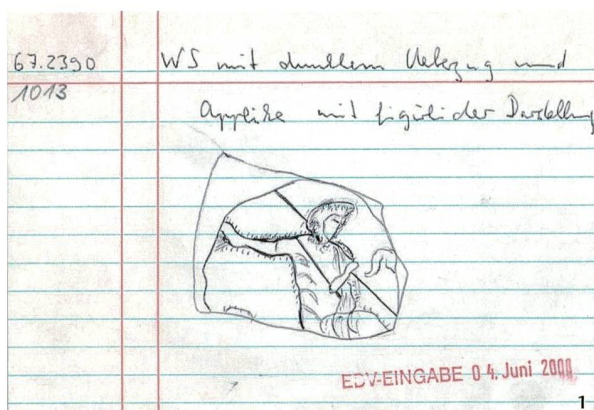 67.2390 WS mit dunklem Ueberzug und
1013 Applike mit figürlicher Darstellung
EDV-EINGABE 04. Juni 2000
1